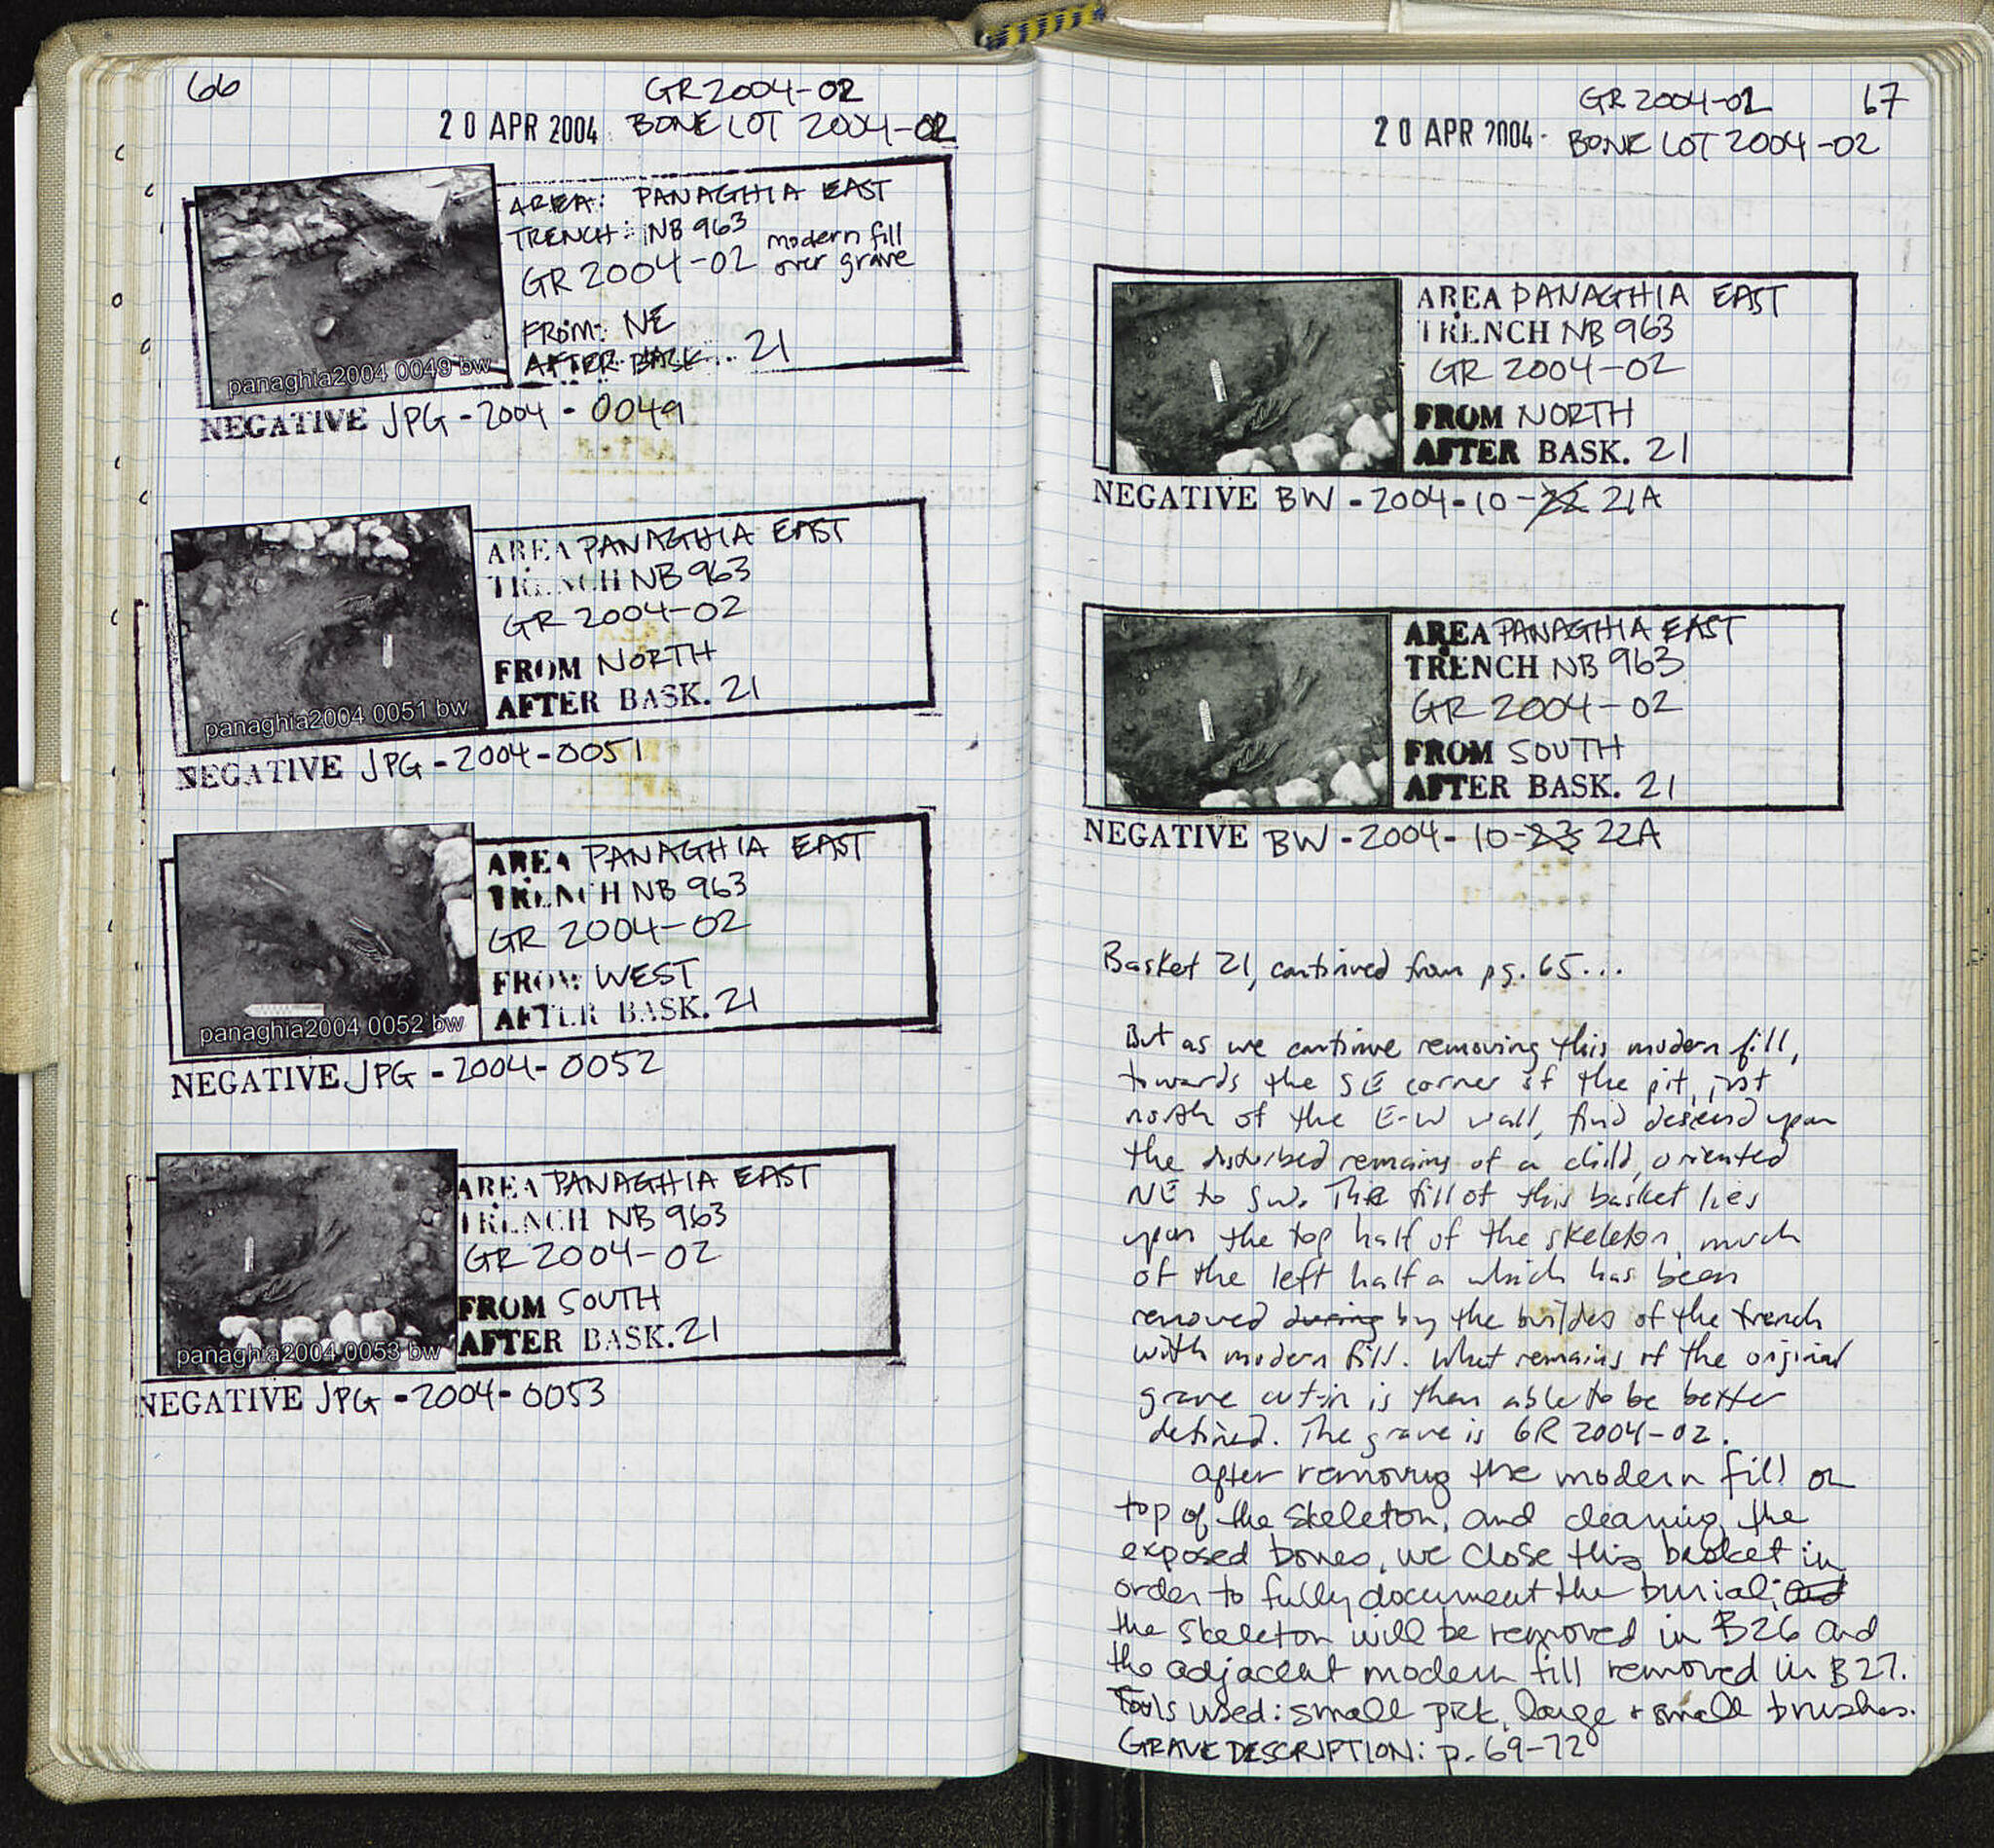 66
GR 2004-02
20 APR 2004 BONE LOT 2004-02
AREA: PANAGHIA EAST
TRENCH: NB 963
modern fill
GR 2004-02 over grave
FROM: NE
AFTER BASK. 21
panaghia2004 0049 bw
NEGATIVE JPG-2004-0049
AREA PANAGHIA EAST
TRENCH NB 963
GR 2004-02
FROM NORTH
AFTER BASK. 21
panaghia2004 0051 bw
NEGATIVE JPG-2004-0051
AREA PANAGHIA EAST
TRENCH NB 963
GR 2004-02
FROM WEST
AFTER BASK. 21
panaghia2004 0052 bw
NEGATIVE JPG-2004-0052
AREA PANAGHIA EAST
TRENCH NB 963
GR 2004-02
FROM SOUTH
AFTER BASK. 21
panaghia2004 0053 bw
NEGATIVE JPG-2004-0053
GR 2004-02 67
20 APR 2004 BONE LOT 2004-02
AREA PANAGHIA EAST
TRENCH NB 963
GR 2004-02
FROM NORTH
AFTER BASK. 21
NEGATIVE BW-2004-10-22 21A
AREA PANAGHIA EAST
TRENCH NB 963
GR 2004-02
FROM SOUTH
AFTER BASK. 21
NEGATIVE BW-2004-10-23 22A
Basket 21, continued from pg. 65...
But as we continue removing this modern fill,
towards the SE corner of the pit, just
north of the E-W wall, find descend upon
the disturbed remains of a child, oriented
NE to SW. The fill of this basket lies
upon the top half of the skeleton, much
of the left half a which has been
removed during by the builders of the trench
with modern fill. What remains of the original
grave cut-in is then able to be better
defined. The grave is GR 2004-02.
after removing the modern fill on
top of the skeleton, and cleaning the
exposed bones, we close this basket in
order to fully document the burial; and
the skeleton will be removed in B26 and
the adjacent modern fill removed in B27.
Tools used: small pick, large + small brushes.
GRAVE DESCRIPTION: p. 69-72